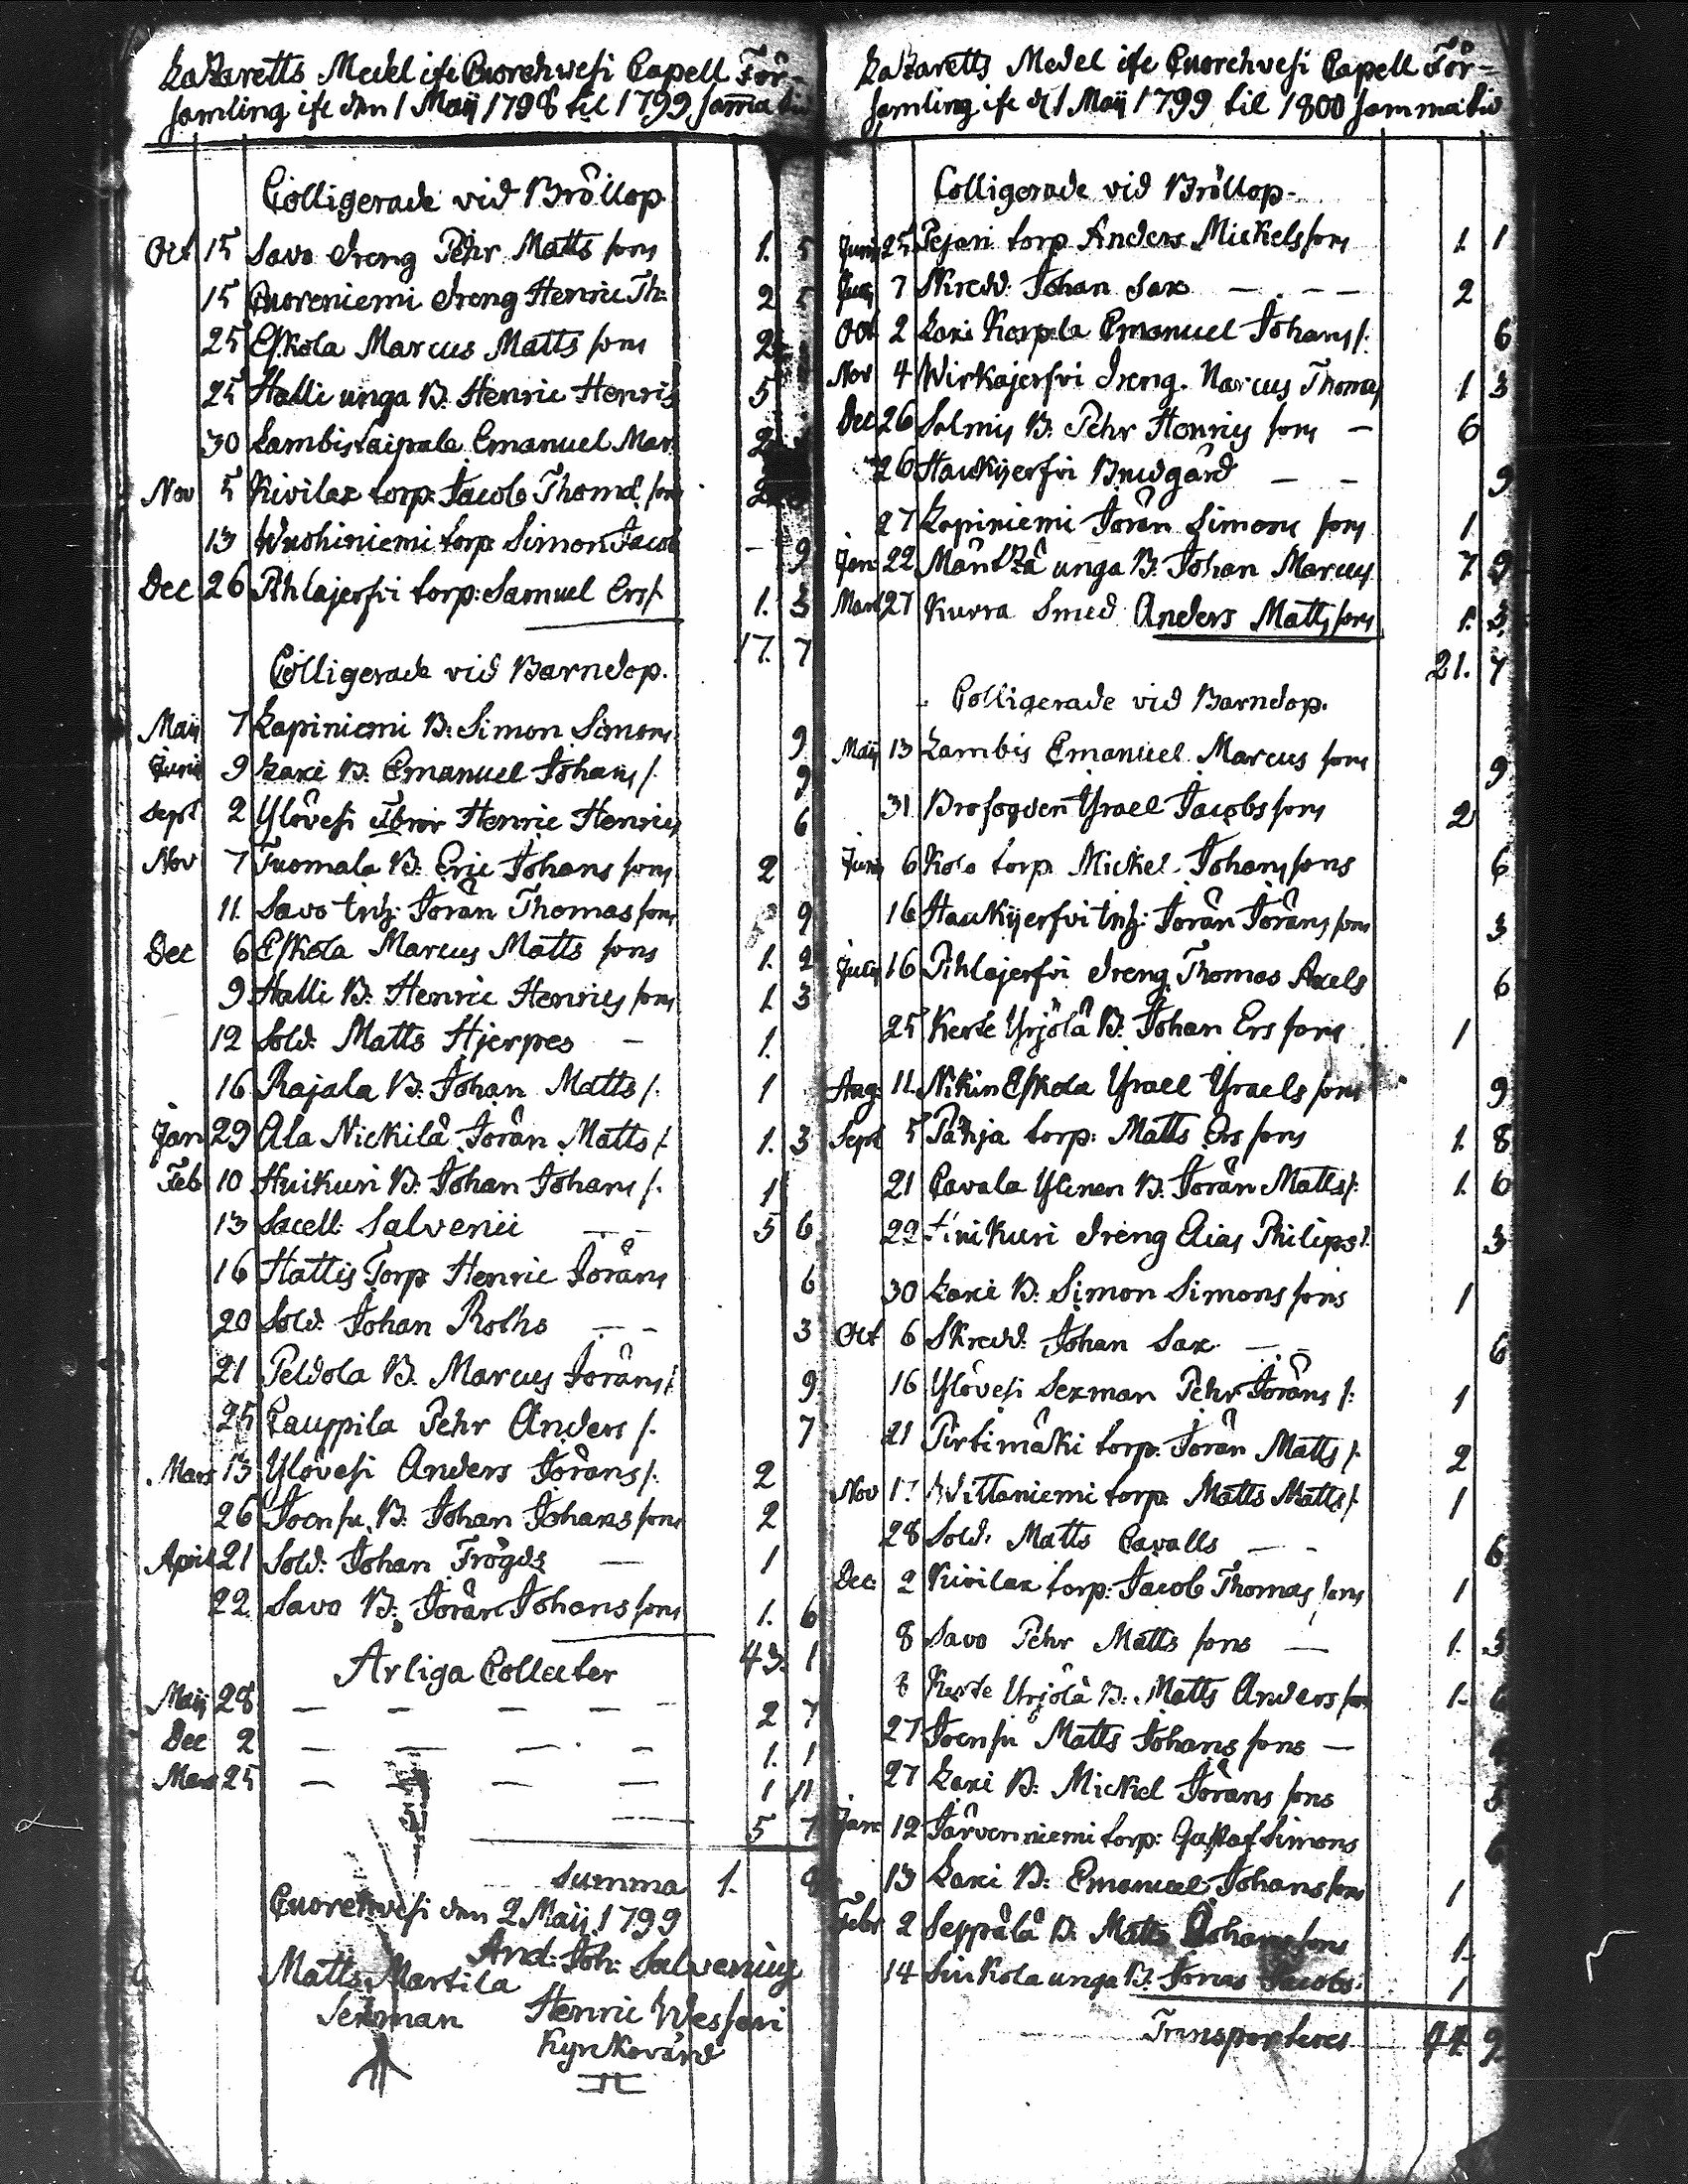 Lazaretts Medel ifr Cuorehwesi Capell För-
samling ifr den 1 Maij 1798 til 1799 samma tid
Colligerade vid Bröllop.
Oct 15 Savo dreng Pehr Matts sons 1. 5
15 Cuoreniemi dreng Henric Th: 2 5
25 Eskola Marcus Matts sons 2
25 Halli unga B. Henric Henrics 5
30 Lambis Laipala Emanuel Mar 2
Nov 5 Kivilax torp: Jacob Thomæ son 2
13 Wuohiniemi torp Simon Jacob – 9
Dec 26 Pihlajerfvi torp: Samuel Ers s. 1. 3
17. 7
Colligerade vid Barndop.
Maij 7 Lapiniemi B: Simon Simons 9
Junii 9 Laxi B. Emanuel Johans s. 9
Sept 2 Ylövesi Henric Henrics 6
Nov 7 Tuomala B. Eric Johans sons 2
11. Savo inh: Jöran Thomas sons 9
Dec 6 Eskola Marcus Matts sons 1. 2
9 Halli B: Henric Henrics sons 1. 3
12 Sold: Matts Hjerpes – 1.
16 Rajala B: Johan Matts s. 1
Jan 29 Ala Nickilä Jöran Matts s. 1. 3
Feb 10 Huikuri B: Johan Johans s. 1
13 Sacell: Salvenii – – 5 6
16 Hattis Torp Henric Jörans 6
20 Sold: Johan Roths – – 3
21 Peldola B. Marcus Jörans s. 9
25 Cauppila Pehr Anders s. 7
Mars 13 Ylövesi Anders Jörans s. 2
26 Joensu B: Johan Johans sons 2
April 21 Sold: Johan Trögds – 1
22 Savo B: Jöran Johans sons 1. 6
43. 1
Årliga Collecter
Maij 28 – – – – – 2 7
Dec 2 – – – – 1. 1
Mars 25 – – – – 1 11
5 7
Summa 1.
Cuorehwesi den 2 Maij 1799
And: Joh: Salvenius
Matts Martila
Sexman
Henric Wessari
Kyrkovärd
Lazaretts Medel ifr Cuorehvesi Capell För-
samling ifr d 1 Maij 1799 til 1800 samma tid
Colligerade vid Bröllop.
Junii 25 Pejari torp Anders Mickels sons 1. 1
7 Skredd: Johan Sax – – – 2
Oct 2 Laxi Korpela Emanuel Johans s. 6
Nov 4 Wirkajerfvi dreng Marcus Thomas 1 3
Dec 26 Salmis B: Pehr Henrics sons – 6
26 Haukijerfvi Brudgård – – 9
27 Lapiniemi Jöran Simons sons 1
Jan 22 Mäntzä unga B: Johan Marcus 7. 9
Mars 27 Kurra Smed Anders Matts sons 1. 3
21. 7
Colligerade vid Barndop.
Maij 13 Lambis Emanuel Marcus sons 9
31 Brofogden Ysrael Jacobs sons 2
Junii 6 Kolo torp Mickel Johans sons 6
16 Haukijerfvi inh: Jöran Jörans sons 3
July 16 Pihlajerfvi dreng Thomas Axels 6
25 Kerte Yrjölä B: Johan Ers sons 1
Aug 11. Nikin Eskola Ysrael Ysraels sons 9
Sept 5 torp: Matts Ers sons 1. 8
21 Cavala Ylinen B: Jöran Matts s. 1. 6
22 Huikuri dreng Elias Philips s. 3
30 Laxi B: Simon Simons sons 1
Oct 6 Skredd: Johan Sax – – 6
16 Ylövesi Sexman Pehr Jörans s. 1
21 Pirtimäki torp: Jöran Matts s. 2
Nov 17 Wittaniemi torp: Matts Matts s. 1
28 Sold: Matts Cavalls – – 6
Dec: 2 Kivilax torp: Jacob Thomas sons 1
8 Savo Pehr Matts sons – 1. 3
8 Kerte Yrjölä B: Matts Anders son 1. 6
27 Joensu Matts Johans sons –
27 Laxi B: Mickel Jörans sons 3
Jan: 12 Järvenniemi torp: Gustaf Simons 6
13 Laxi B: Emanuel Johans sons 1
Febr 2 Seppälä B: Matts Johans sons 1.
14 Siukola unga B. Jonas Jacobs: 1
Transporteres 44. 9